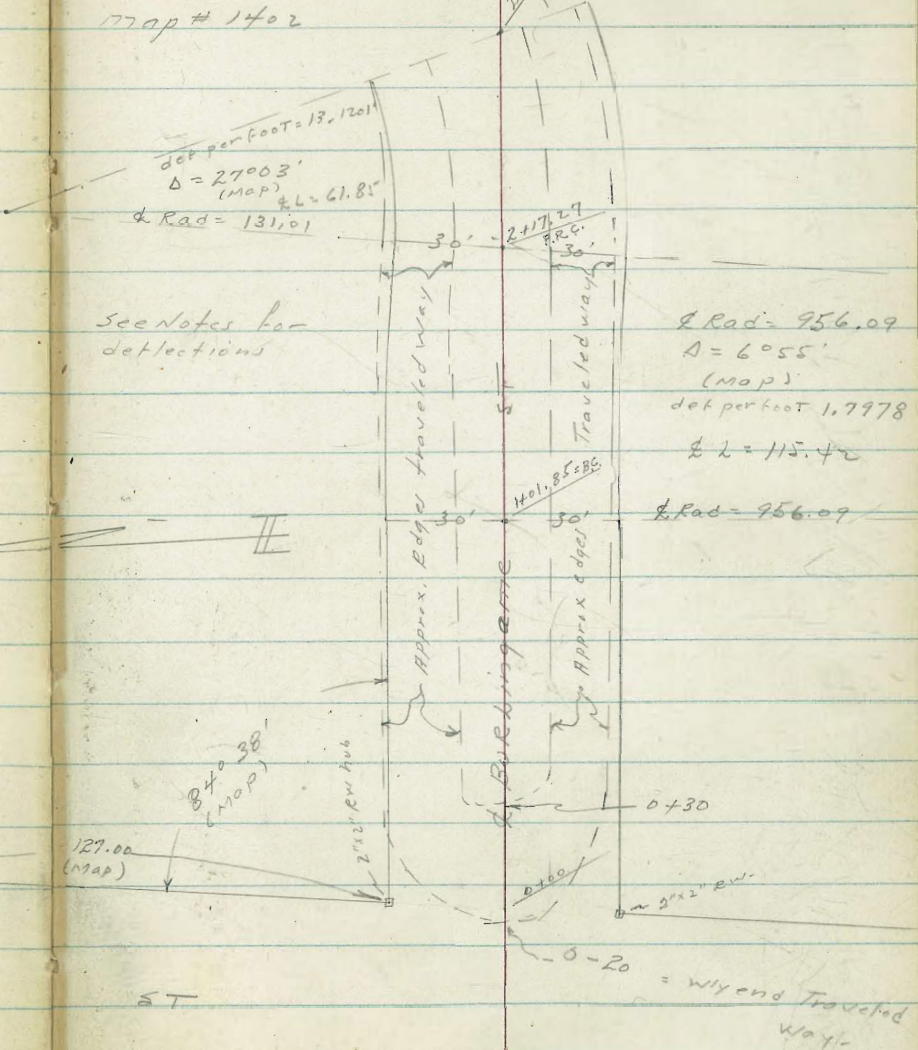 map # 1402
def per foot = 13.1201'
Δ = 27°03'
(map)
℄ L = 61.85
℄ Rad = 131.01
2+17.27
P.R.C.
30'
30'
See Notes for
deflections
℄ Rad = 956.09
Δ = 6°55'
(map)
def per foot 1.7978
℄ L = 115.42
1+01.85 = BC.
30'
30'
℄ Rad = 956.09
II
Approx. Edges traveled way
Approx edges Traveled way
℄ Burlingame ST
84° 38'
(Map)
2"x2" RW hub
0+30
127.00
(map)
0+00
2"x2" RW.
0-20
= W'ly end Traveled
way.
ST